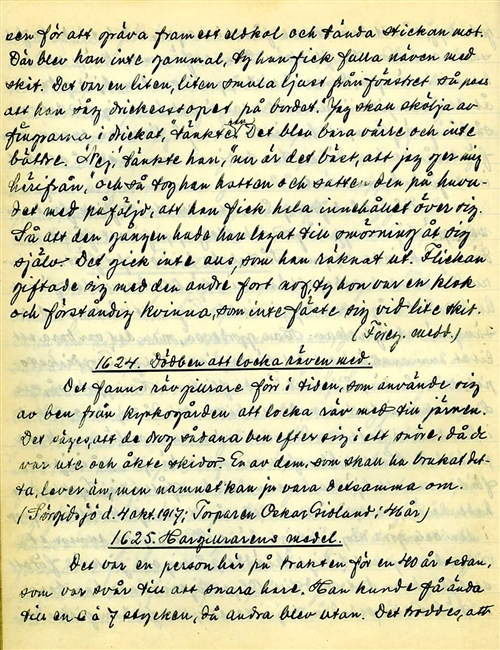 sen för att gräva fram ett eldkol och tända stickan mot.
Där blev han inte gammal, ty han fick fulla näven med
skit. Det var en liten, liten smula ljust från fönstret så pass
att han såg drickesstopet på bordet. "Jag skan skölja av
fingrarna i drickat," tänkte han. Det blev bara värre och inte
bättre. "Nej," tänkte han, "nu är det bäst, att jag ger mig
härifrån," och så tog han hattan och satte den på huvu-
det med påföljd, att han fick hela innehållet över sig.
Så att den gången hade han lagat till smörning åt sig
själv. Det gick inte aus, som han räknat ut. Flickan
giftade sig med den andre fort nog, ty hon var en klok
och förståndig kvinna, som inte fäste sig vid lite skit.
(Föreg. medd.)
1624. Dödben att locka räven med.
Det fanns rävgillrare förr i tiden, som använde sig
av ben från kyrkogården att locka räv med till järnen.
Det säges, att de drog sådana ben efter sig i ett snöre, då de
var ute och åkte skidor. En av dem, som skall ha brukat det-
ta, lever än, men namnet kan ju vara detsamma om.
(Sörgidsjö d. 4 okt. 1917; Torparen Oskar Gidland; 46 år)
1625. Hargillrarens medel.
Det var en person här på trakten för en 40 år sedan,
som var svår till att snara hare. Han kunde få ända
till en 6 à 7 stycken, då andra blev utan. Det troddes, att